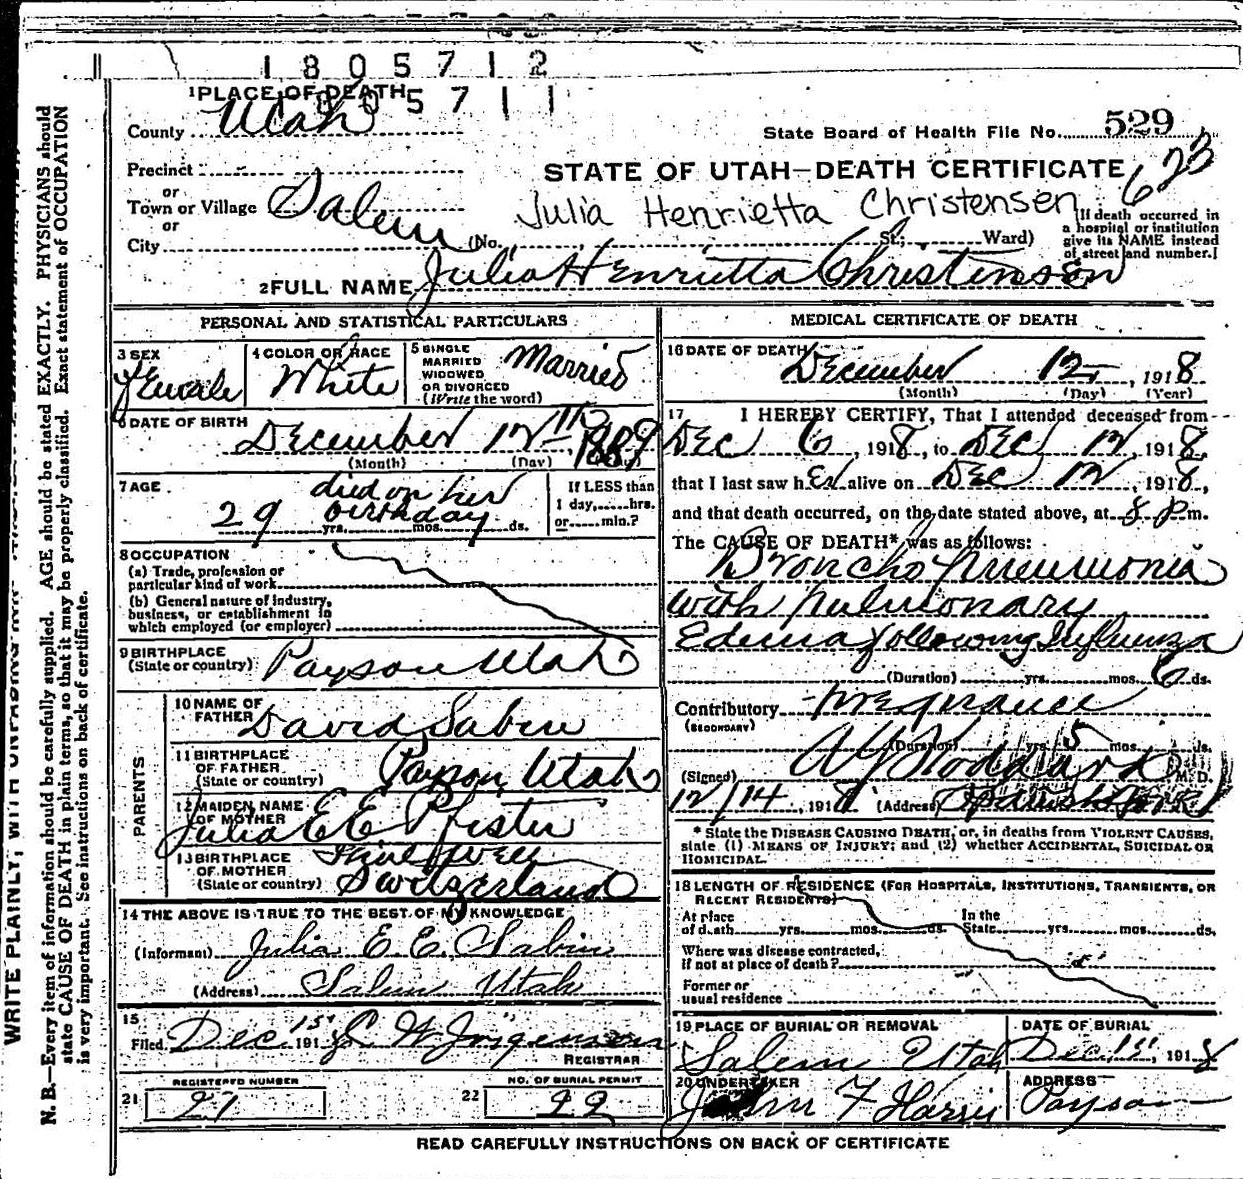 1805712
1PLACE OF DEATH 1805711
County Utah
State Board of Health File No. 529
Precinct
or
Town or Village Salem
or
City
STATE OF UTAH—DEATH CERTIFICATE 623
Julia Henrietta Christensen
(No. St.; Ward)
[If death occurred in
a hospital or institution
give its NAME instead
of street and number.]
2FULL NAME Julia Henrietta Christensen
PERSONAL AND STATISTICAL PARTICULARS
3 SEX
Female
4 COLOR OR RACE
White
5 SINGLE
MARRIED
WIDOWED
OR DIVORCED
(Write the word)
Married
6 DATE OF BIRTH
December 12 1889
(Month) (Day)
7 AGE
died on her
birthday
29 yrs. mos. ds.
If LESS than
1 day, hrs.
or min.?
8 OCCUPATION
(a) Trade, profession or
particular kind of work
(b) General nature of industry,
business, or establishment in
which employed (or employer)
9 BIRTHPLACE
(State or country) Payson Utah
PARENTS
10 NAME OF
FATHER David Sabin
11 BIRTHPLACE
OF FATHER
(State or country) Payson, Utah
12 MAIDEN NAME
OF MOTHER
Julia E E Pfister
13 BIRTHPLACE
OF MOTHER
(State or country) Switzerland
14 THE ABOVE IS TRUE TO THE BEST OF MY KNOWLEDGE
(Informant) Julia E. E. Sabin
(Address) Salem Utah
15
Filed Dec. 1st 191
REGISTRAR
REGISTERED NUMBER
21 21
NO. OF BURIAL PERMIT
22 22
MEDICAL CERTIFICATE OF DEATH
16 DATE OF DEATH
December 12, 1918
(Month) (Day) (Year)
17 I HEREBY CERTIFY, That I attended deceased from
Dec 6, 1918, to Dec 12, 1918,
that I last saw her alive on Dec 12, 1918,
and that death occurred, on the date stated above, at 8 p m.
The CAUSE OF DEATH* was as follows:
Broncho Pneumonia
with Pulmonary
Edema following Influenza
(Duration) yrs. mos. 6 ds.
Contributory
(SECONDARY)
(Duration) yrs. 5 mos. ds.
(Signed) M. D.
12/14, 1918 (Address) Spanish Fork
* State the DISEASE CAUSING DEATH, or, in deaths from VIOLENT CAUSES,
state (1) MEANS OF INJURY; and (2) whether ACCIDENTAL, SUICIDAL OR
HOMICIDAL.
18 LENGTH OF RESIDENCE (FOR HOSPITALS, INSTITUTIONS, TRANSIENTS, OR
RECENT RESIDENTS)
At place
of death yrs. mos. ds.
In the
State yrs. mos. ds.
Where was disease contracted,
if not at place of death?
Former or
usual residence
19 PLACE OF BURIAL OR REMOVAL
Salem Utah
DATE OF BURIAL
Dec. 1st, 1918
20 UNDERTAKER
John F Harris
ADDRESS
Payson
READ CAREFULLY INSTRUCTIONS ON BACK OF CERTIFICATE
N. B.—Every item of information should be carefully supplied. AGE should be stated EXACTLY. PHYSICIANS should
state CAUSE OF DEATH in plain terms, so that it may be properly classified. Exact statement of OCCUPATION
is very important. See instructions on back of certificate.
WRITE PLAINLY; WITH